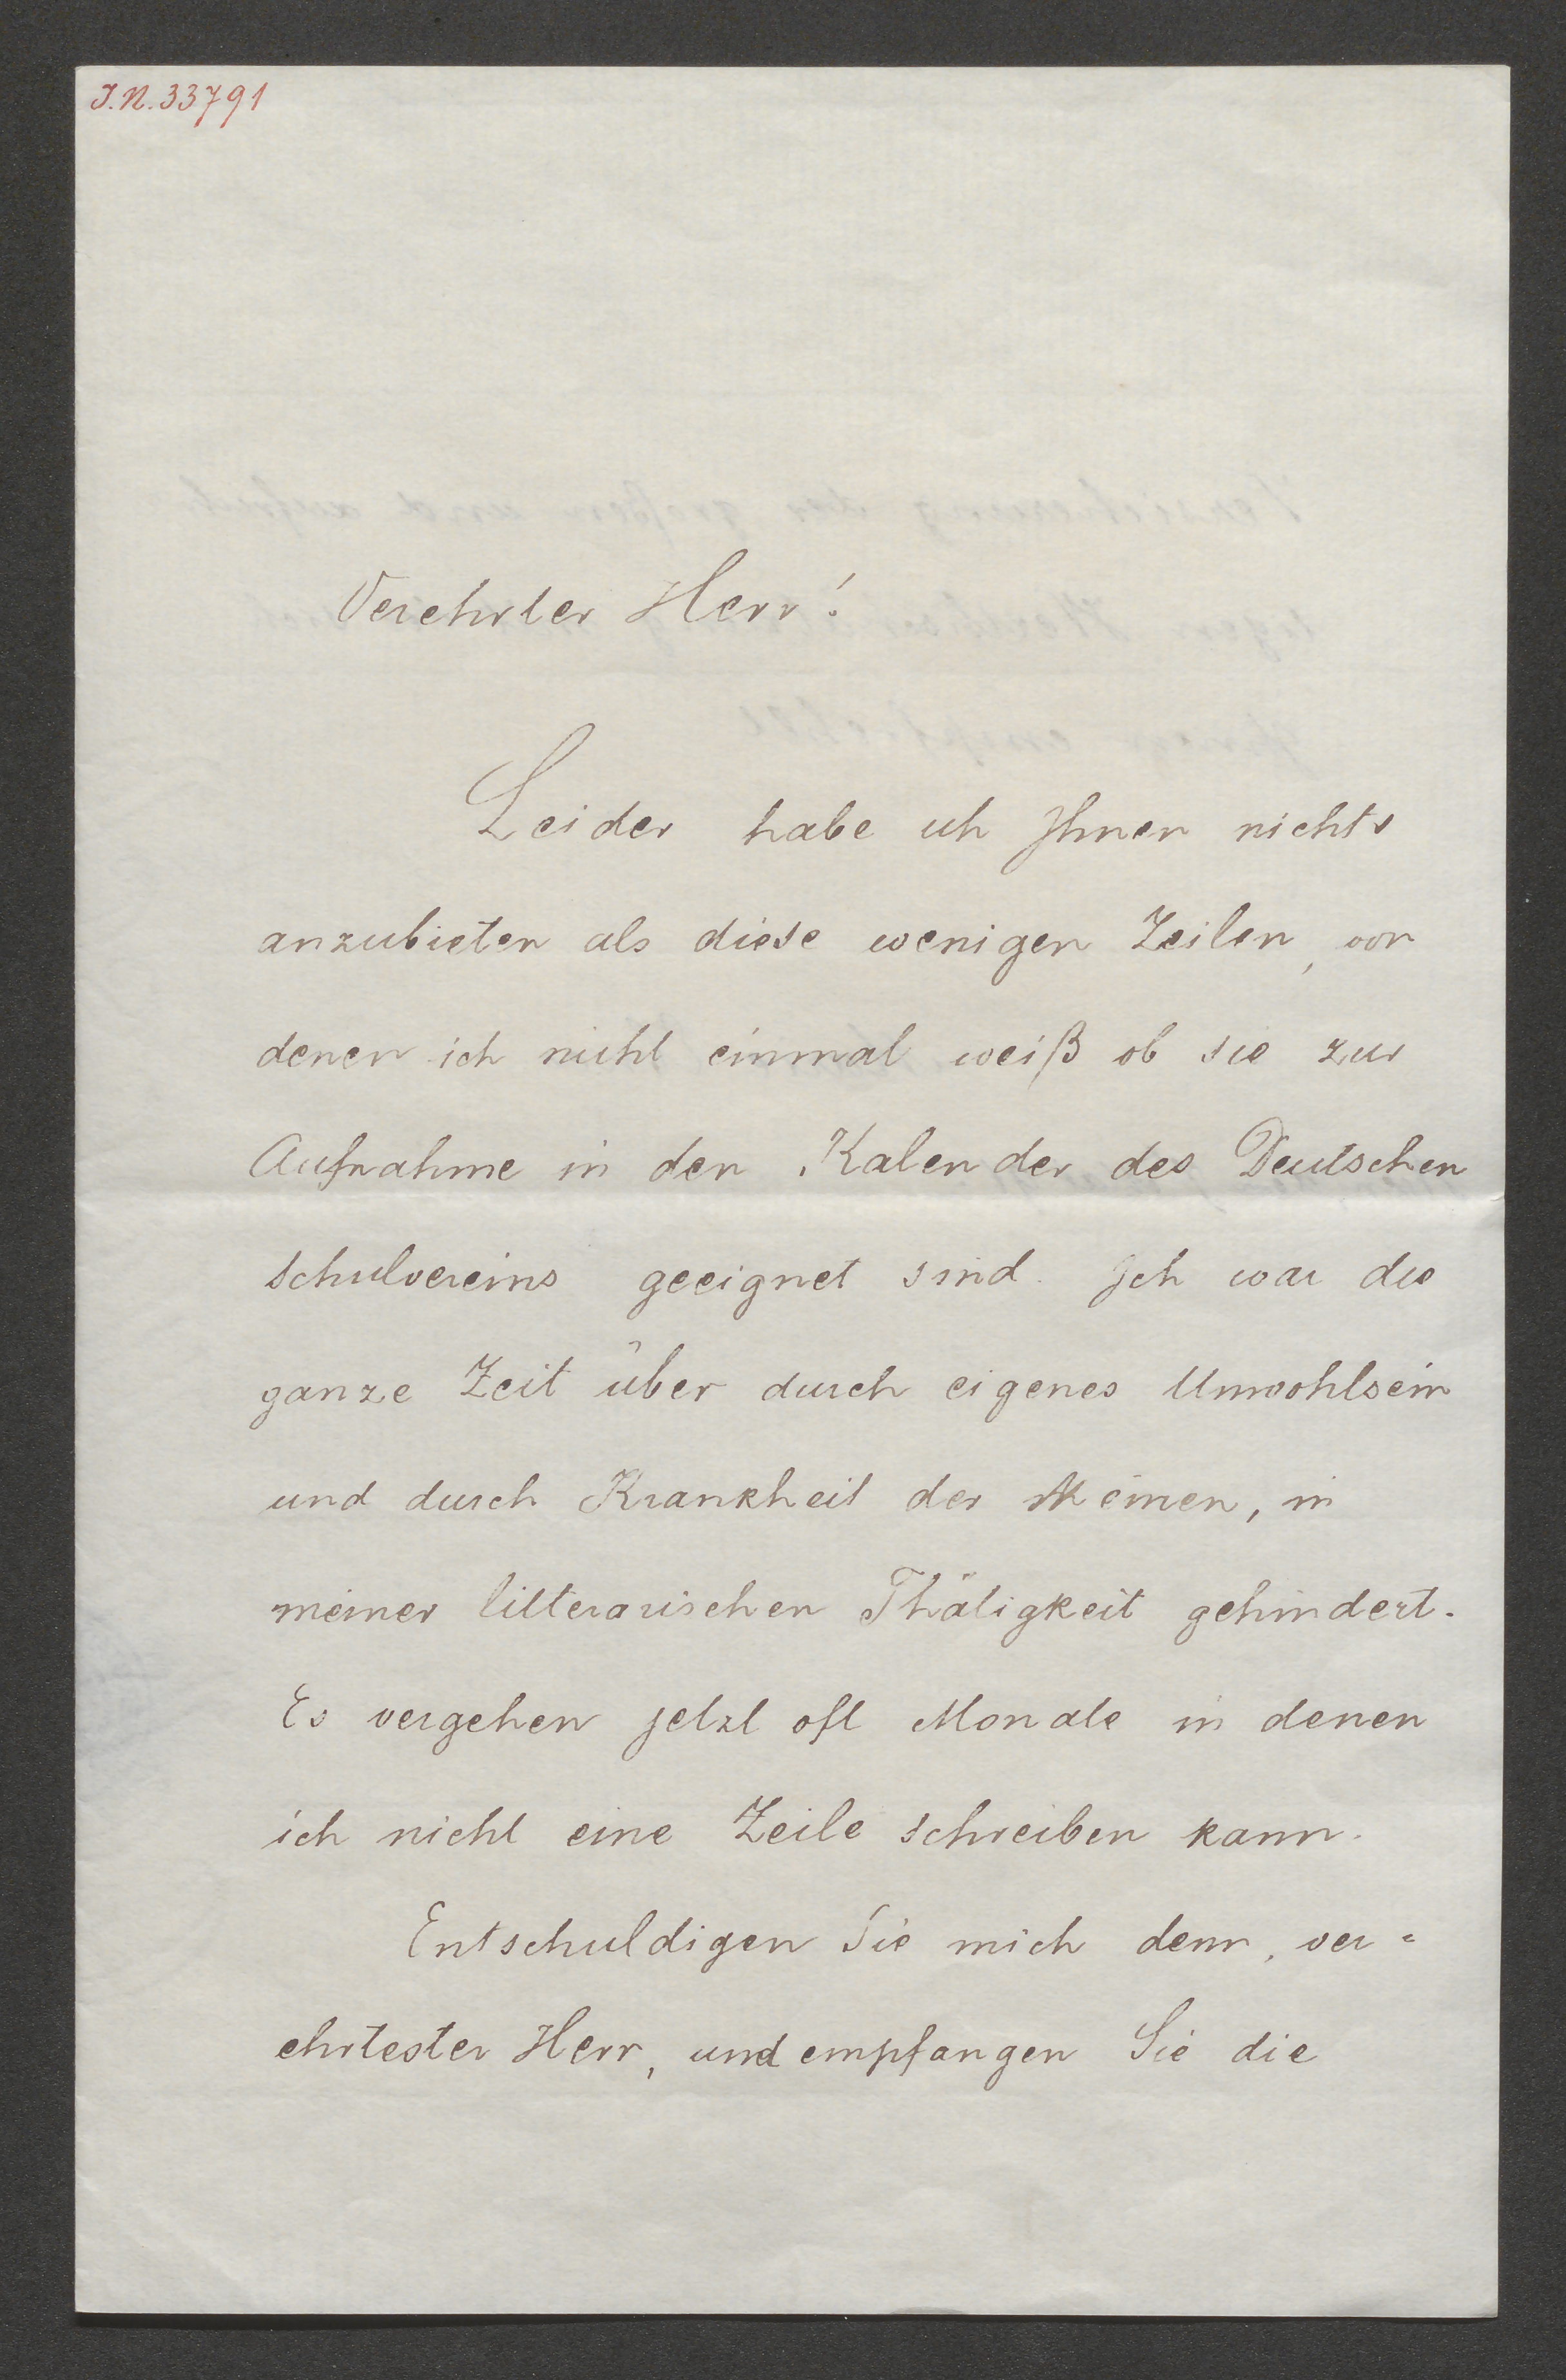 I.N. 33791
Verehrter Herr!
Leider habe ich Ihnen nichts
anzubieten als diese wenigen Zeilen, von
denen ich nicht einmal weiß ob sie zur
Aufnahme in den Kalender des Deutschen
Schulvereins geeignet sind. Ich war die
ganze Zeit über durch eigenes Unwohlsein
und durch Krankheit der Meinen, in
meiner litterarischen Thätigkeit gehindert.
Es vergehen jetzt oft Monate in denen
ich nicht eine Zeile schreiben kann.
Entschuldigen Sie mich denn, ver=
ehrtester Herr, und empfangen Sie die